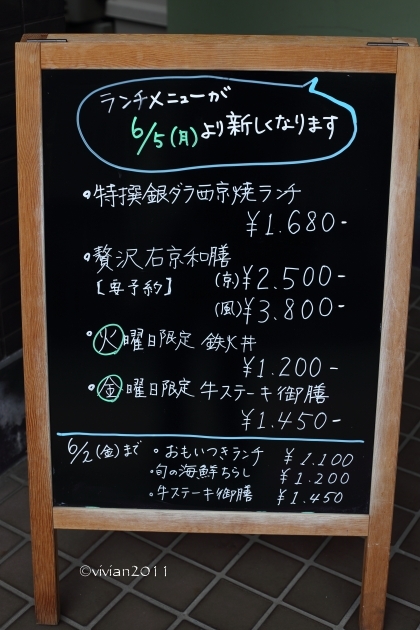 ランチメニューが
6/5(月)より新しくなります
・特撰銀ダラ西京焼ランチ
¥1.680-
・贅沢右京和膳
[要予約] (京)¥2.500-
(風)¥3.800-
・火曜日限定 鉄火丼
¥1.200-
・金曜日限定 牛ステーキ御膳
¥1.450-
6/2(金)まで ・おもいつきランチ ¥1.100
・旬の海鮮ちらし ¥1.200
・牛ステーキ御膳 ¥1.450
©vivian2011